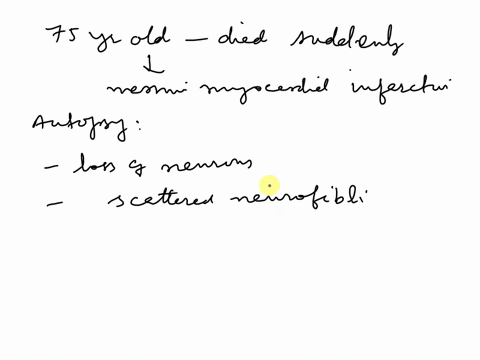 75 yr old – died suddenly
↓
myocardial infarctui
Autopsy:
- loss of neurons
- scattered neurofibli